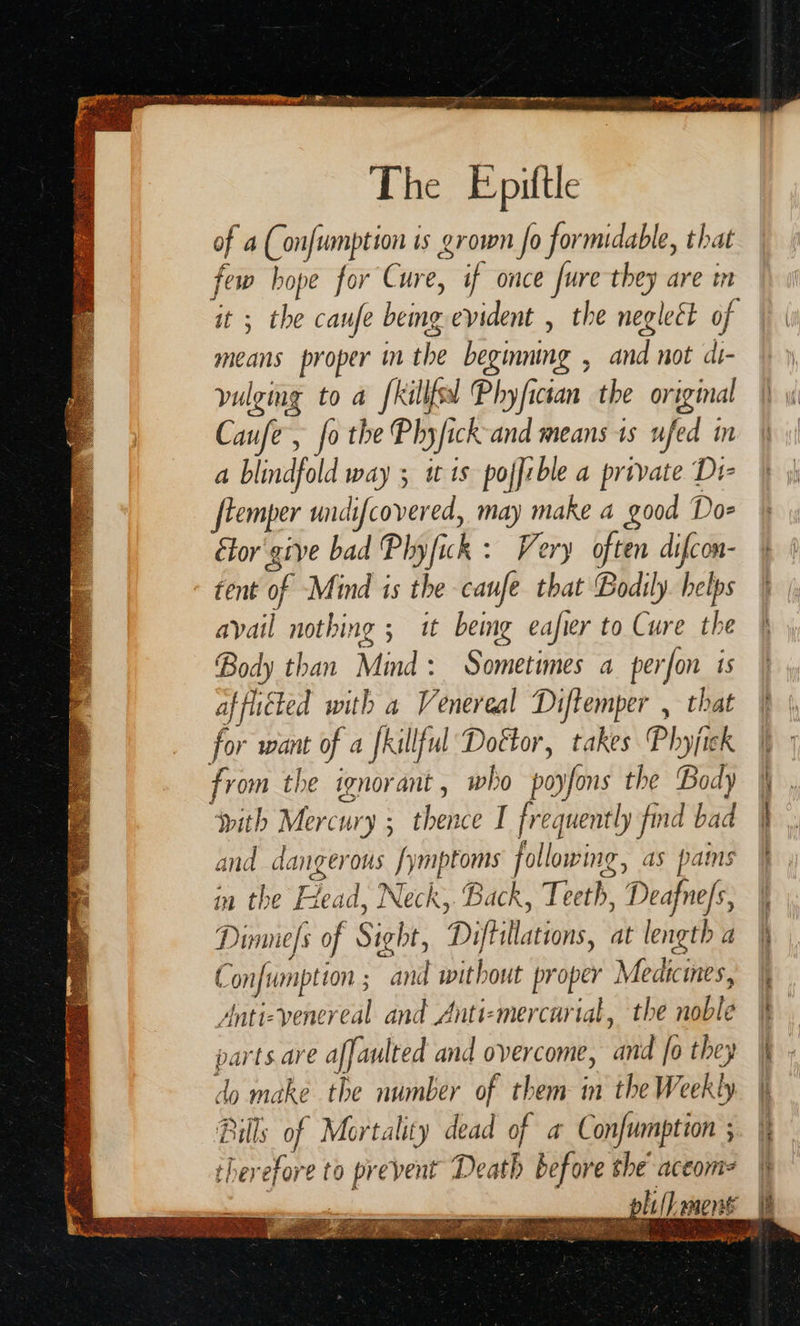 The Epiſtle
of a Conſumption is grown ſo formidable, that
few hope for Cure, if once ſure they are in
it ; the cauſe being evident , the neglect of
means proper in the beginning , and not di-
vulging to a ſkillful Phyſician the original
Cauſe , ſo the Phyſick and means is uſed in
a blindfold way ; it is poſſible a private Di-
ſtemper undiſcovered, may make a good Do-
ctor give bad Phyſick : Very often diſcon-
tent of Mind is the cauſe that Bodily helps
avail nothing ; it being eaſier to Cure the
Body than Mind : Sometimes a perſon is
afflicted with a Venereal Diſtemper , that
for want of a ſkillful Doctor, takes Phyſick
from the ignorant , who poyſons the Body
with Mercury ; thence I frequently find bad
and dangerous ſymptoms following, as pains
in the Head, Neck, Back, Teeth, Deafneſs,
Dimneſs of Sight, Diſtillations, at length a
Conſumption ; and without proper Medicines,
Anti-venereal and Anti-mercurial, the noble
parts are aſſaulted and overcome, and ſo they
do make the number of them in the Weekly
Bills of Mortality dead of a Conſumption ;
therefore to prevent Death before the accom-
pliſhment